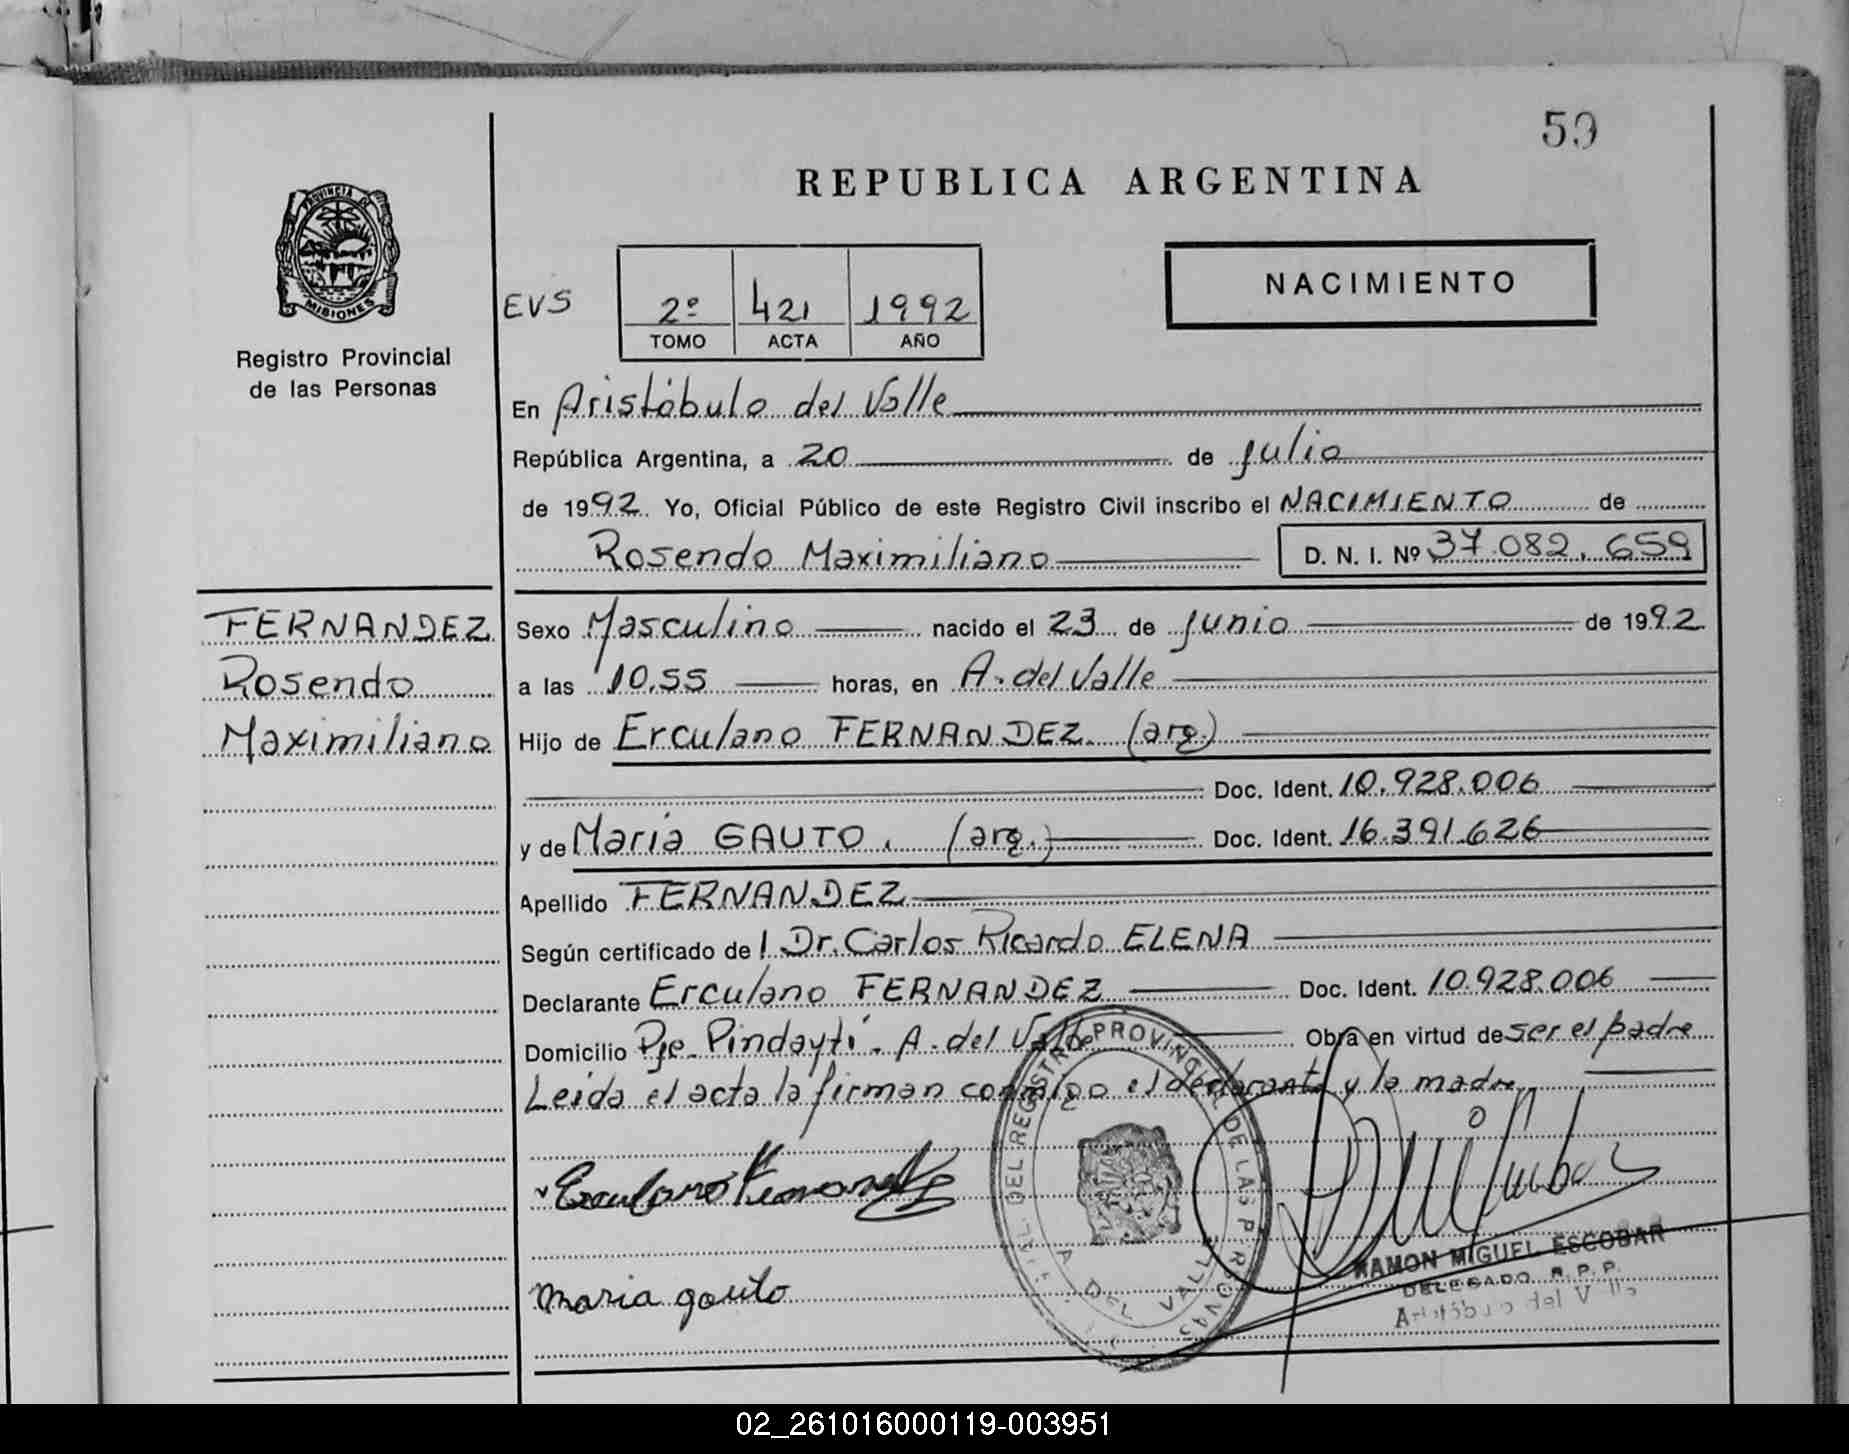 59
REPUBLICA ARGENTINA
PROVINCIA DE
MISIONES
Registro Provincial
de las Personas
EVS
2º 421 1992
TOMO ACTA AÑO
NACIMIENTO
En Aristóbulo del Valle
República Argentina, a 20 de julio
de 1992. Yo, Oficial Público de este Registro Civil inscribo el NACIMIENTO de
Rosendo Maximiliano D. N. I. Nº 37.082.659
FERNANDEZ
Rosendo
Maximiliano
Sexo Masculino nacido el 23 de junio de 1992
a las 10.55 horas, en A. del Valle
Hijo de Erculano FERNANDEZ (arg.)
Doc. Ident. 10.928.006
y de Maria GAUTO. (arg.) Doc. Ident. 16.391.626
Apellido FERNANDEZ
Según certificado del Dr. Carlos Ricardo ELENA
Declarante Erculano FERNANDEZ Doc. Ident. 10.928.006
Domicilio Pje. Pindaytí. A. del Valle Obra en virtud de ser el padre
Leida el acta la firman conmigo el declarante y la madre
DEL REGISTRO PROVINCIAL DE LAS PERSONAS
A. DEL VALLE
Erculano Fernandez
RAMON MIGUEL ESCOBAR
DELEGADO R. P. P.
Aristóbulo del Valle
maria gauto
02_261016000119-003951